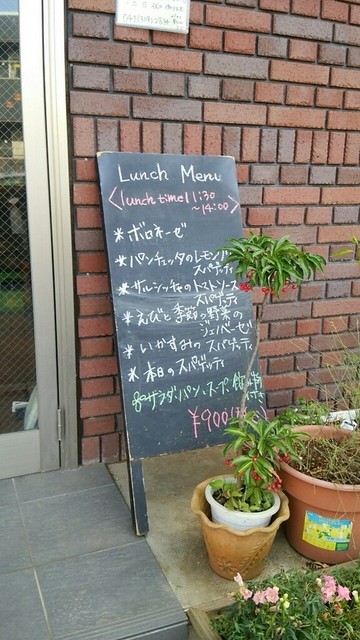 Lunch Menu
<lunch time 11:30
~14:00>
*ボロネーゼ
*パンチェッタのレモン
スパゲッティ
*サルシッチャのトマトソース
スパゲッティ
*えびと季節の野菜の
ジェノベーゼ
*いかすみのスパゲッティ
*本日のスパゲッティ
サラダ・パン・スープ・
¥900